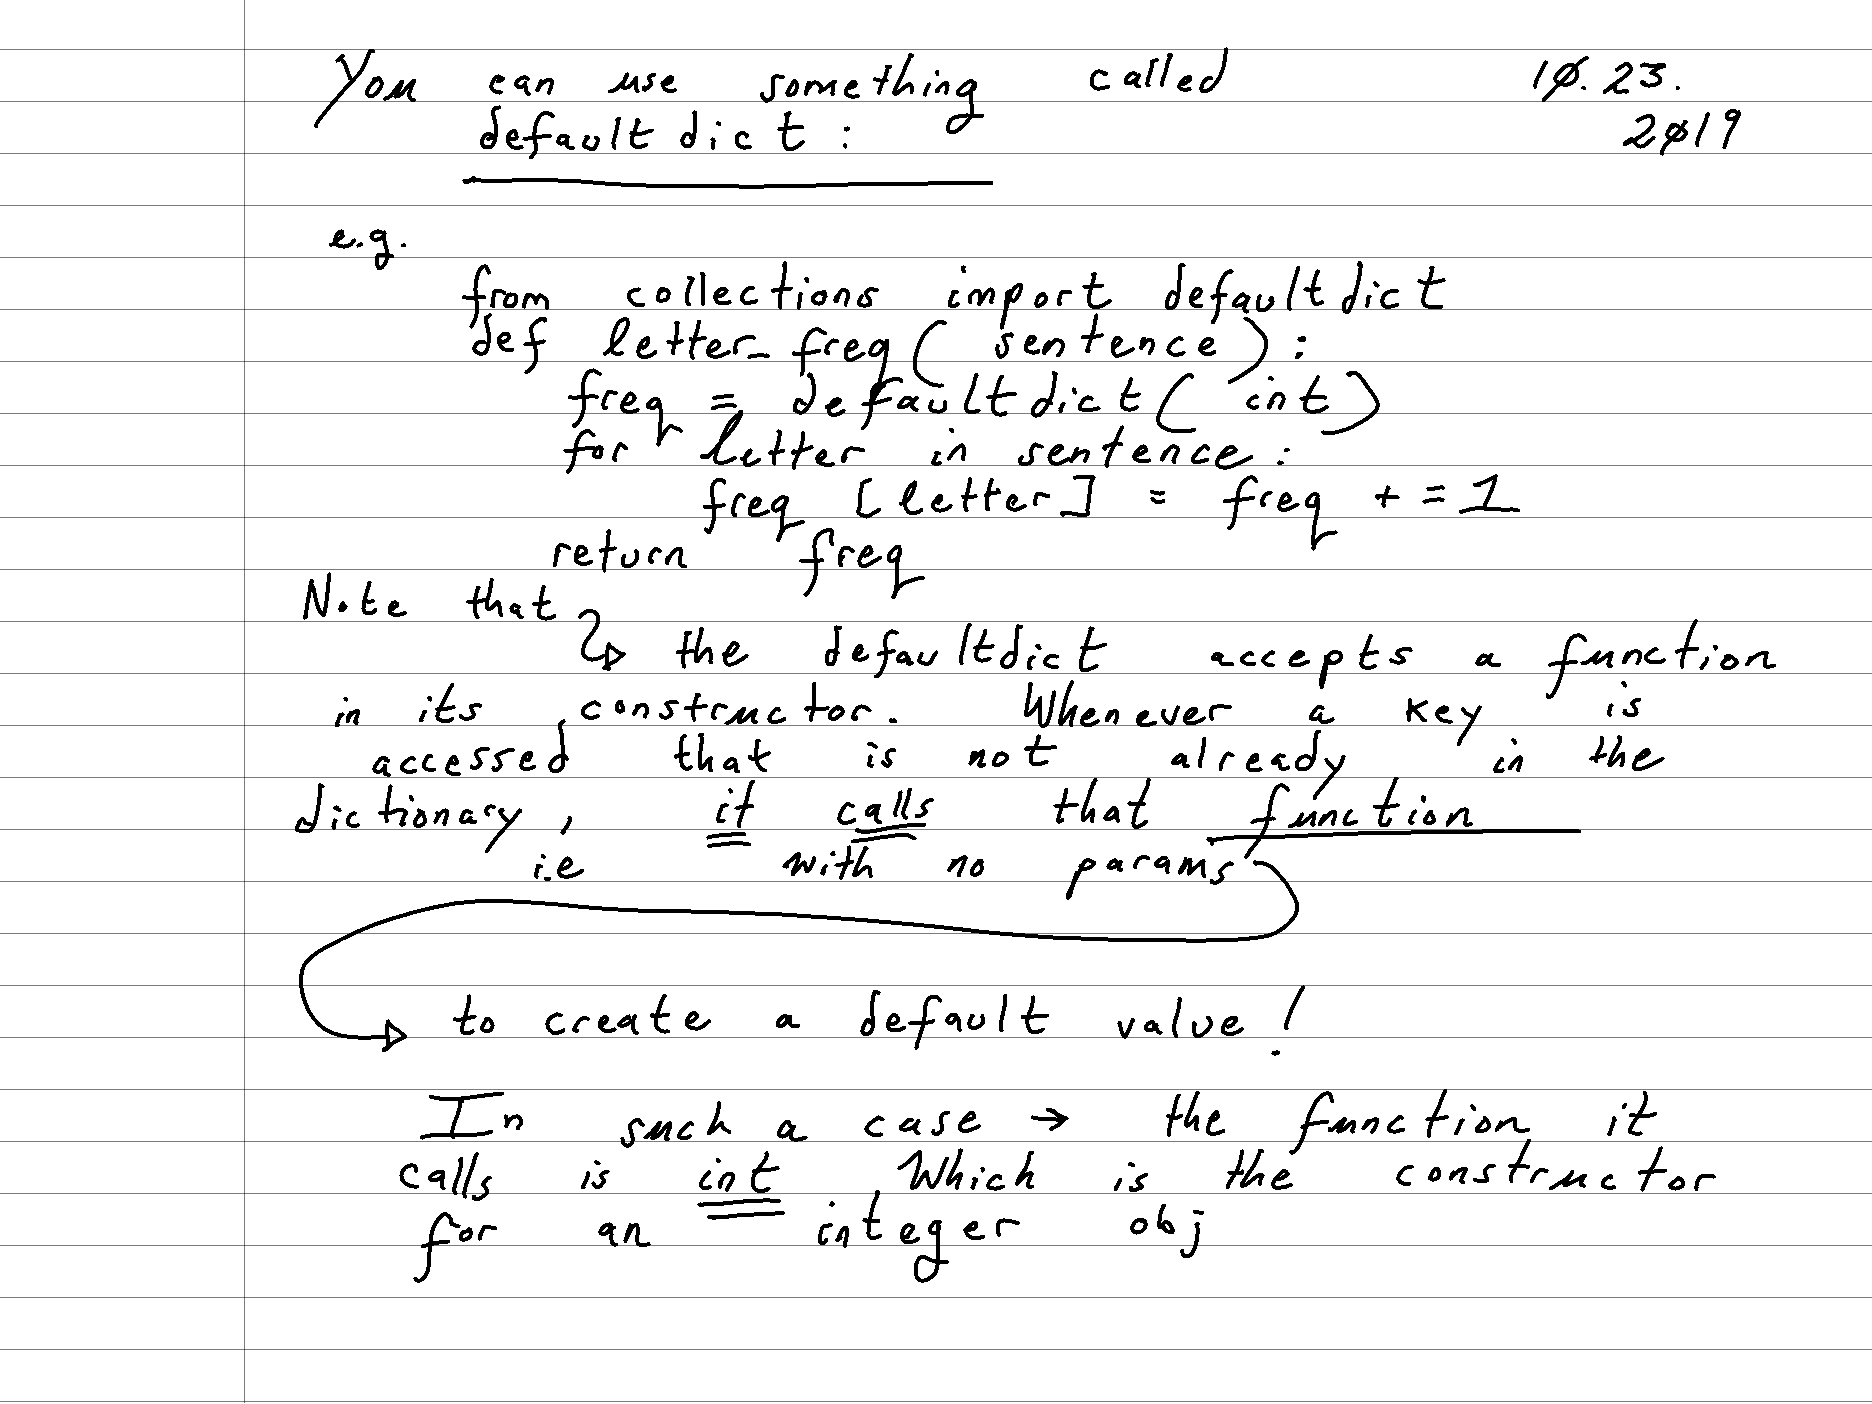 You can use something called 10.23.
defaultdict: 2019
e.g.
from collections import defaultdict
def letter_freq( sentence):
freq = defaultdict( int)
for letter in sentence:
freq [letter] = freq + = 1
return freq
Note that
→ the defaultdict accepts a function
in its constructor. Whenever a key is
accessed that is not already in the
dictionary, it calls that function
i.e with no params
→ to create a default value!
In such a case → the function it
calls is int. Which is the constructor
for an integer obj